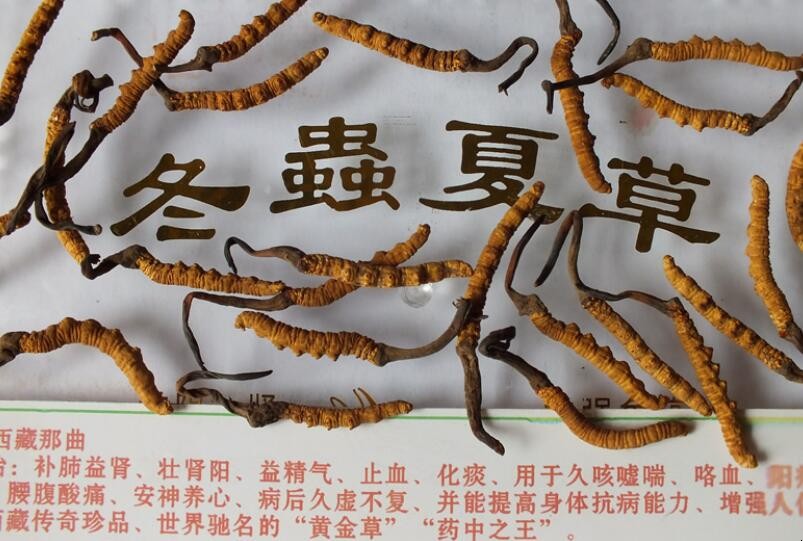 冬蟲夏草
西藏那曲
治：补肺益肾、壮肾阳、益精气、止血、化痰、用于久咳嘘喘、咯血、阳
腰腹酸痛、安神养心、病后久虚不复、并能提高身体抗病能力、增强人
西藏传奇珍品、世界驰名的“黄金草”“药中之王”。